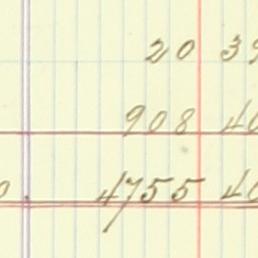 20 39
908 40
0 4755 40